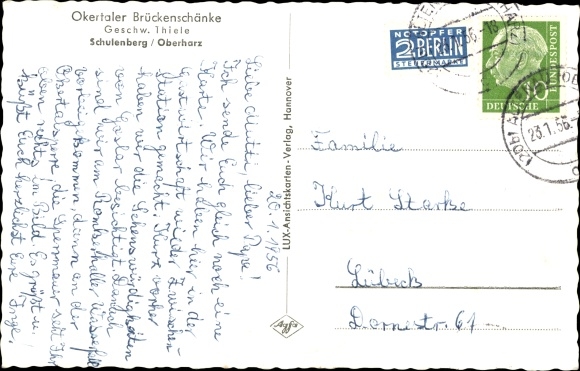 Okertaler Brückenschänke
Geschw. Thiele
Schulenberg / Oberharz
Liebe Mutti, lieber Papa!
20.1.1956
Ich sende Euch gleich noch eine
Karte. Wir haben hier in der
Gastwirtschaft wieder Zwischen-
station gemacht. Kurz vorher
haben wir die Sehenswürdigkeiten
von Goslar besichtigt. Danach
sind wir am Romkerhaller Wasserfall
vorbeigekommen, dann an der
Okertalsperre, die Sperrmauer seht Ihr
oben rechts im Bild. Es grüßt u.
küßt Euch herzlichst Eure Inge.
LUX-Ansichtskarten-Verlag, Hannover
Agfa
NOTOPFER
2 BERLIN
STEUERMARKE
10
DEUTSCHE
BUNDESPOST
23.1.56
Familie
Kurt Starke
Lübeck
Dornestr. 61